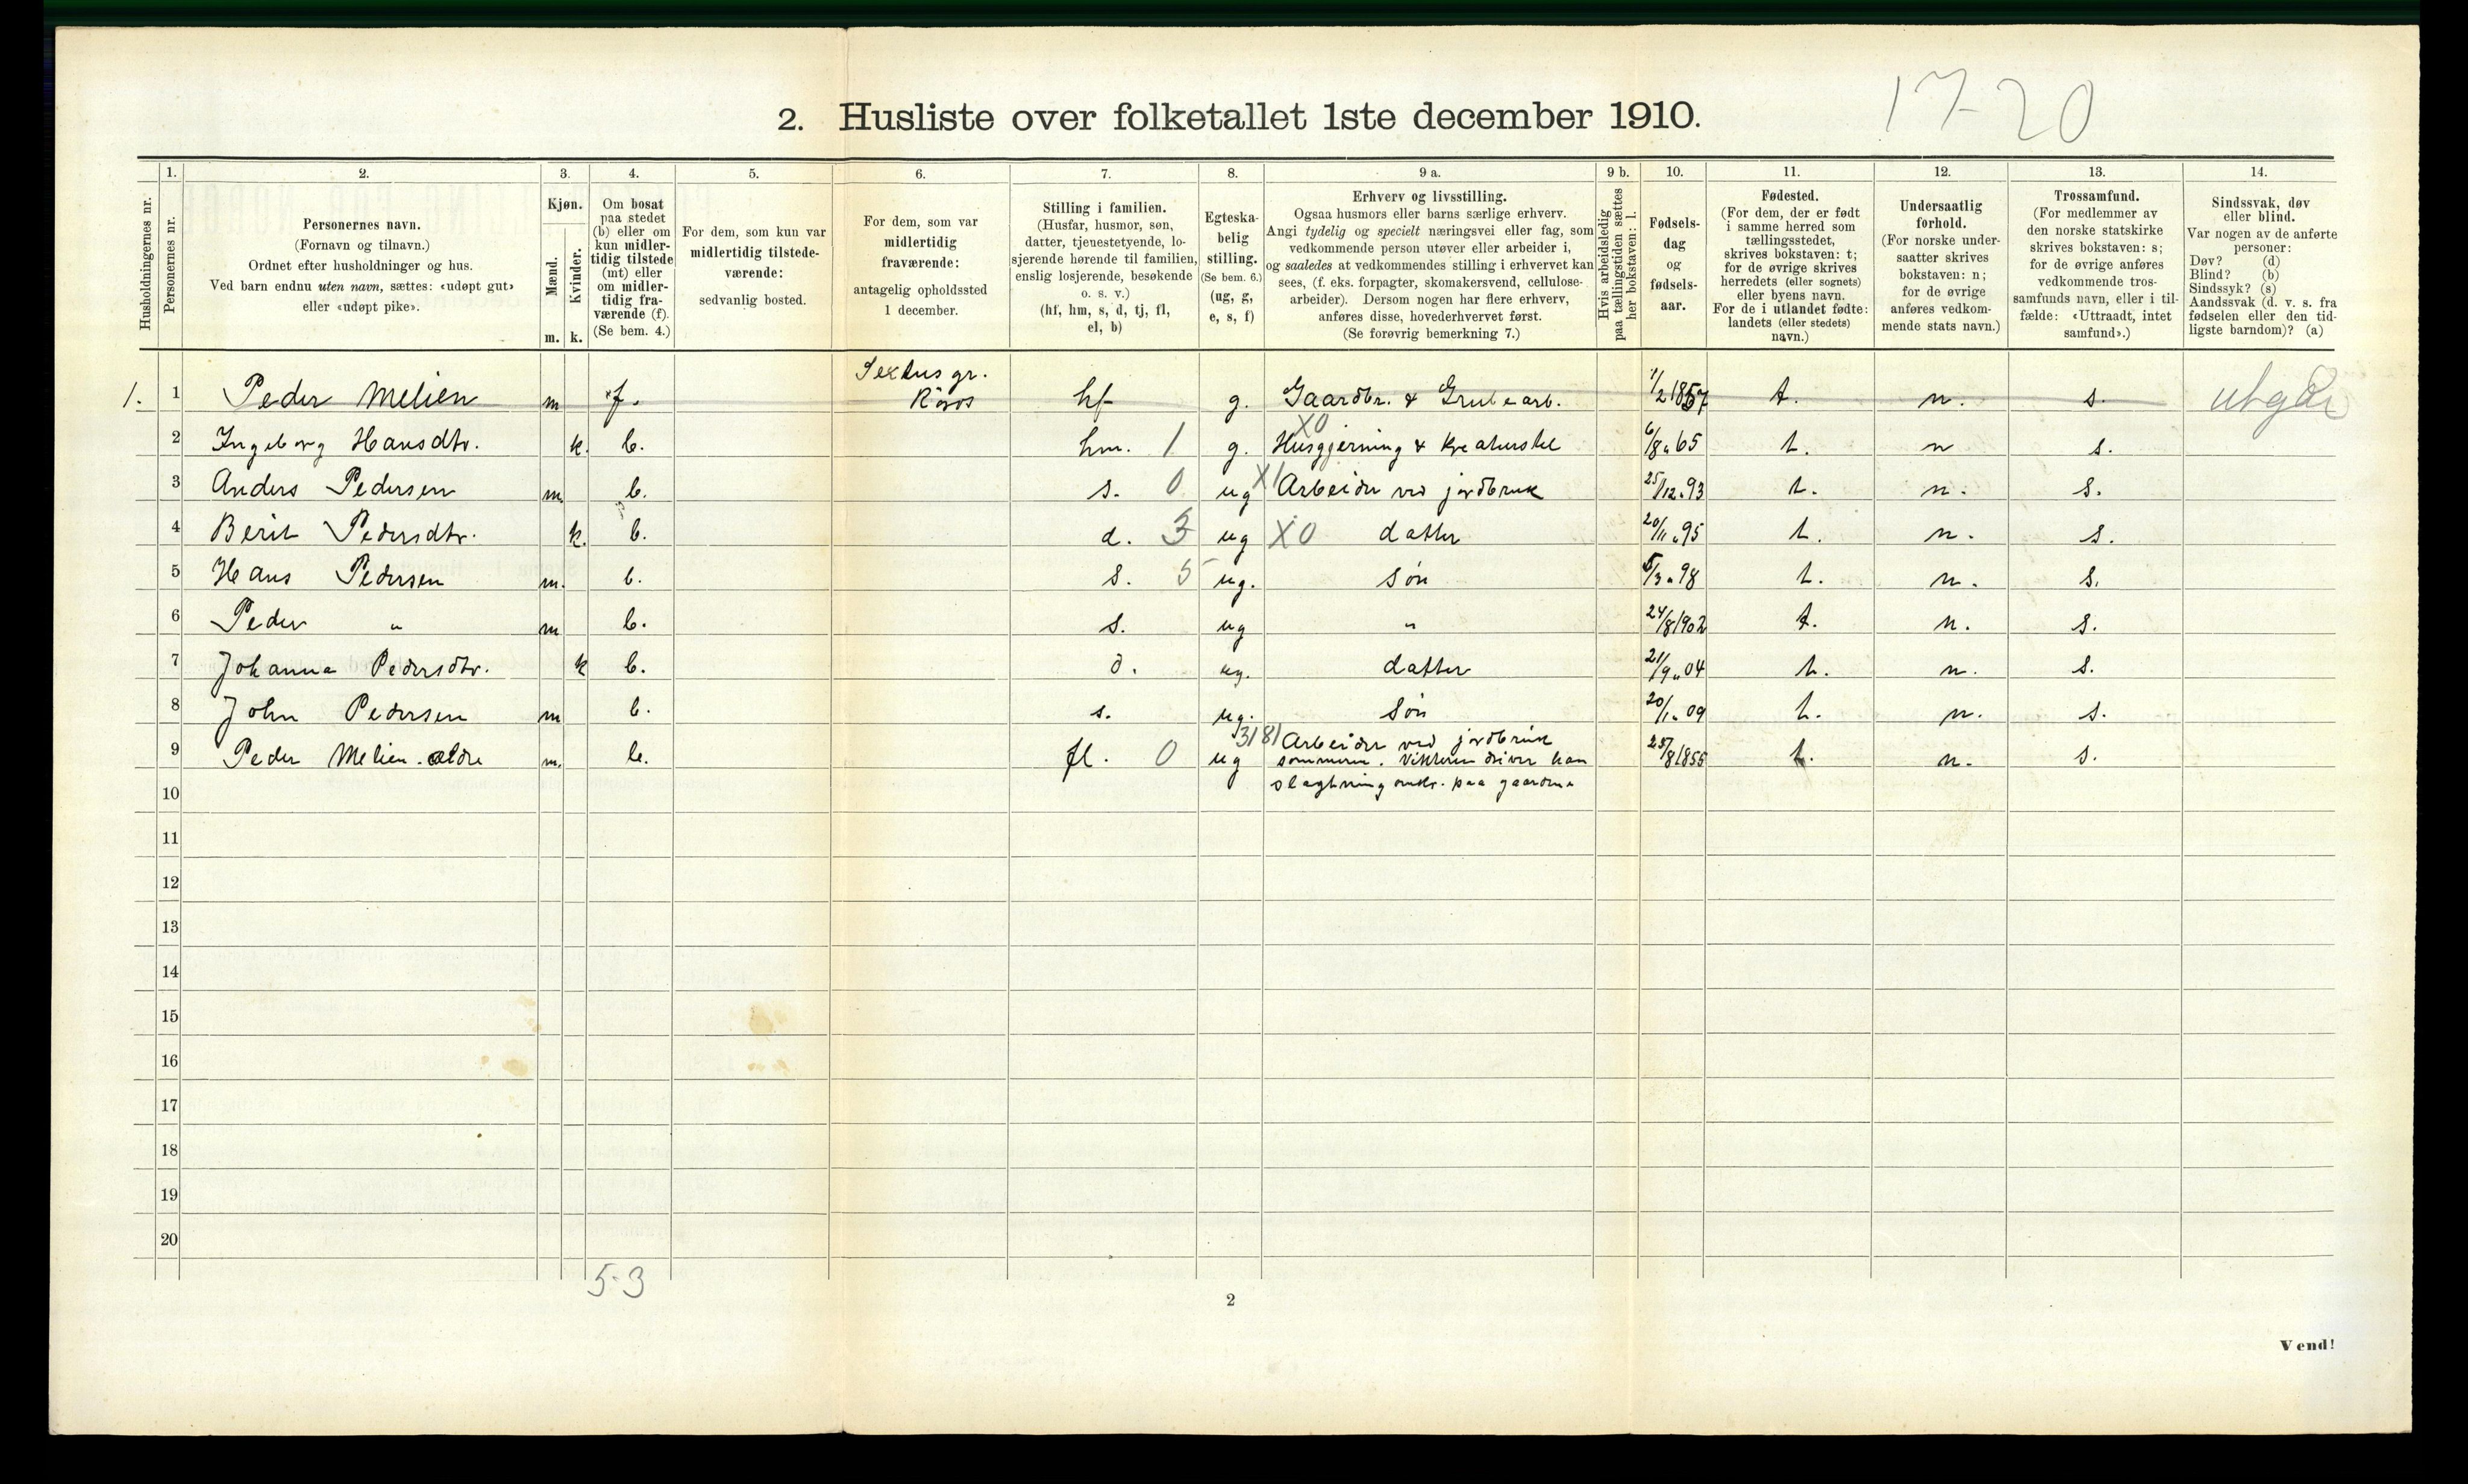 17-20
2. Husliste over folketallet 1ste december 1910.
1. 2. 3. 4. 5. 6. 7. 8. 9 a. 9 b. 10. 11. 12. 13. 14.
Husholdningernes nr.
Personernes nr.
Personernes navn.
(Fornavn og tilnavn.)
Ordnet efter husholdninger og hus.
Ved barn endnu uten navn, sættes: «udøpt gut»
eller «udøpt pike».
Kjøn.
Mænd.
Kvinder.
m. k.
Om bosat
paa stedet
(b) eller om
kun midler-
tidig tilstede
(mt) eller
om midler-
tidig fra-
værende (f).
(Se bem. 4.)
For dem, som kun var
midlertidig tilstede-
værende:
sedvanlig bosted.
For dem, som var
midlertidig
fraværende:
antagelig opholdssted
1 december.
Stilling i familien.
(Husfar, husmor, søn,
datter, tjenestetyende, lo-
sjerende hørende til familien,
enslig losjerende, besøkende
o. s. v.)
(hf, hm, s, d, tj, fl,
el, b)
Egteska-
belig
stilling.
(Se bem. 6.)
(ug, g,
e, s, f)
Erhverv og livsstilling.
Ogsaa husmors eller barns særlige erhverv.
Angi tydelig og specielt næringsvei eller fag, som
vedkommende person utøver eller arbeider i,
og saaledes at vedkommendes stilling i erhvervet kan
sees, (f. eks. forpagter, skomakersvend, cellulose-
arbeider). Dersom nogen har flere erhverv,
anføres disse, hovederhvervet først.
(Se forøvrig bemerkning 7.)
Hvis arbeidsledig
paa tællingstiden sættes
her bokstaven: l.
Fødsels-
dag
og
fødsels-
aar.
Fødested.
(For dem, der er født
i samme herred som
tællingsstedet,
skrives bokstaven: t;
for de øvrige skrives
herredets (eller sognets)
eller byens navn.
For de i utlandet fødte:
landets (eller stedets)
navn.)
Undersaatlig
forhold.
(For norske under-
saatter skrives
bokstaven: n;
for de øvrige
anføres vedkom-
mende stats navn.)
Trossamfund.
(For medlemmer av
den norske statskirke
skrives bokstaven: s;
for de øvrige anføres
vedkommende tros-
samfunds navn, eller i til-
fælde: «Uttraadt, intet
samfund».)
Sindssvak, døv
eller blind.
Var nogen av de anførte
personer:
Døv? (d)
Blind? (b)
Sindssyk? (s)
Aandssvak (d. v. s. fra
fødselen eller den tid-
ligste barndom)? (a)
Sextus gr.
1. 1 Peder Melien m f. Röros hf g. Gaardbr. & Grubearb. 1/2 1857 t. n. s. utgår
X0
2 Ingeborg Hansdtr. k. b. hm. 1 g. Husgjerning & Kreaturstel 6/8 „ 65 t. n s.
3 Anders Pedersen m. b. s. 0 ug X1 Arbeider ved jordbruk 25/12 „ 93 t. n. s.
4 Berit Pedersdtr. k. b. d. 3 ug X0 datter 20/11 „ 95 t. n. s.
5 Hans Pedersen m. b. s. 5 ug. søn 5/3 „ 98 t. n. s.
6 Peder „ m b. s. ug „ 24/8 1902 t. n. s.
7 Johanna Pedersdtr. k b. d. ug. datter 21/9 „ 04 t. n. s.
8 John Pedersen m b. s. ug. søn 20/1 „ 09 t. n. s.
3181 Arbeider ved jordbruk
9 Peder Melien. ældre m. b. fl. 0 ug sommeren. Vinteren driver han 25/8 1855 t. n. s.
slagtning omkr. paa gaardene
10
11
12
13
14
15
16
17
18
19
20
5-3
2
Vend!